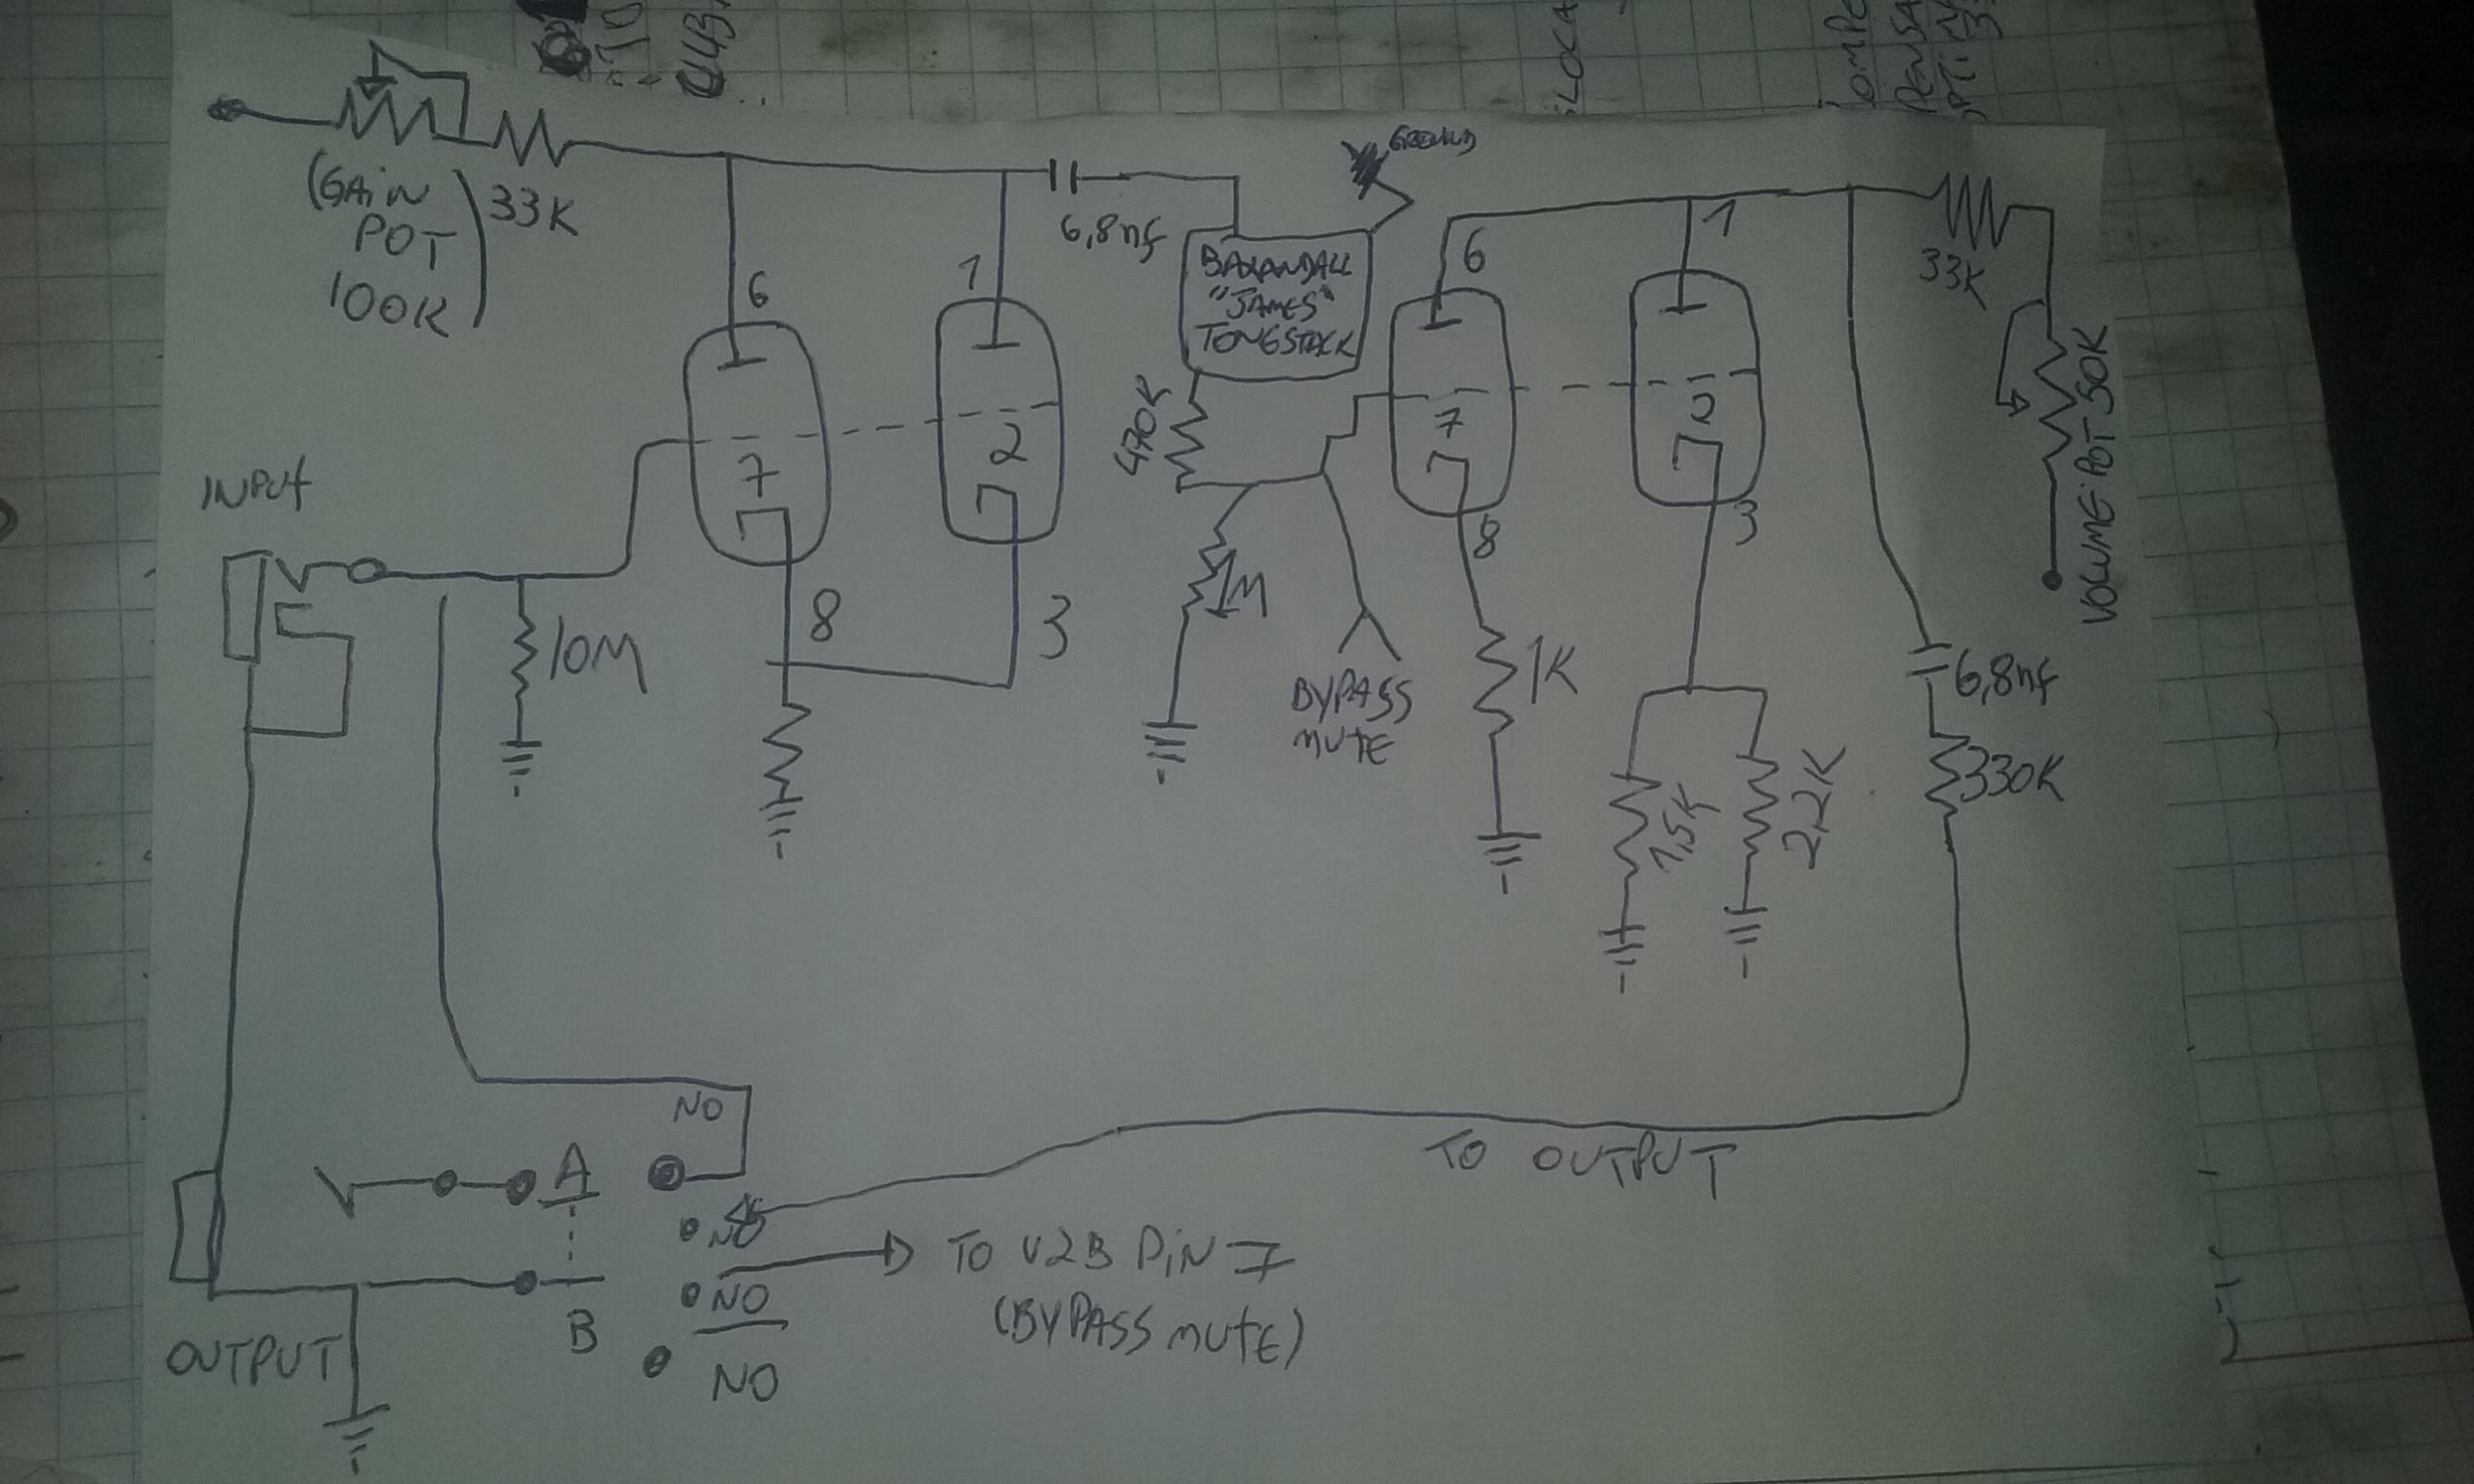 (GAIN
POT
100K)
33K
6,8nf
GROUND
BAXANDALL
"JAMES"
TONESTACK
6
1
7
2
8
3
INPUT
10M
470K
1M
BYPASS
MUTE
6
1
7
2
8
3
1K
1,5K
2,2K
33K
VOLUME POT 50K
6,8nf
330K
TO OUTPUT
NO
A
NO
TO V2B PIN 7
(BYPASS MUTE)
NO
B
NO
OUTPUT